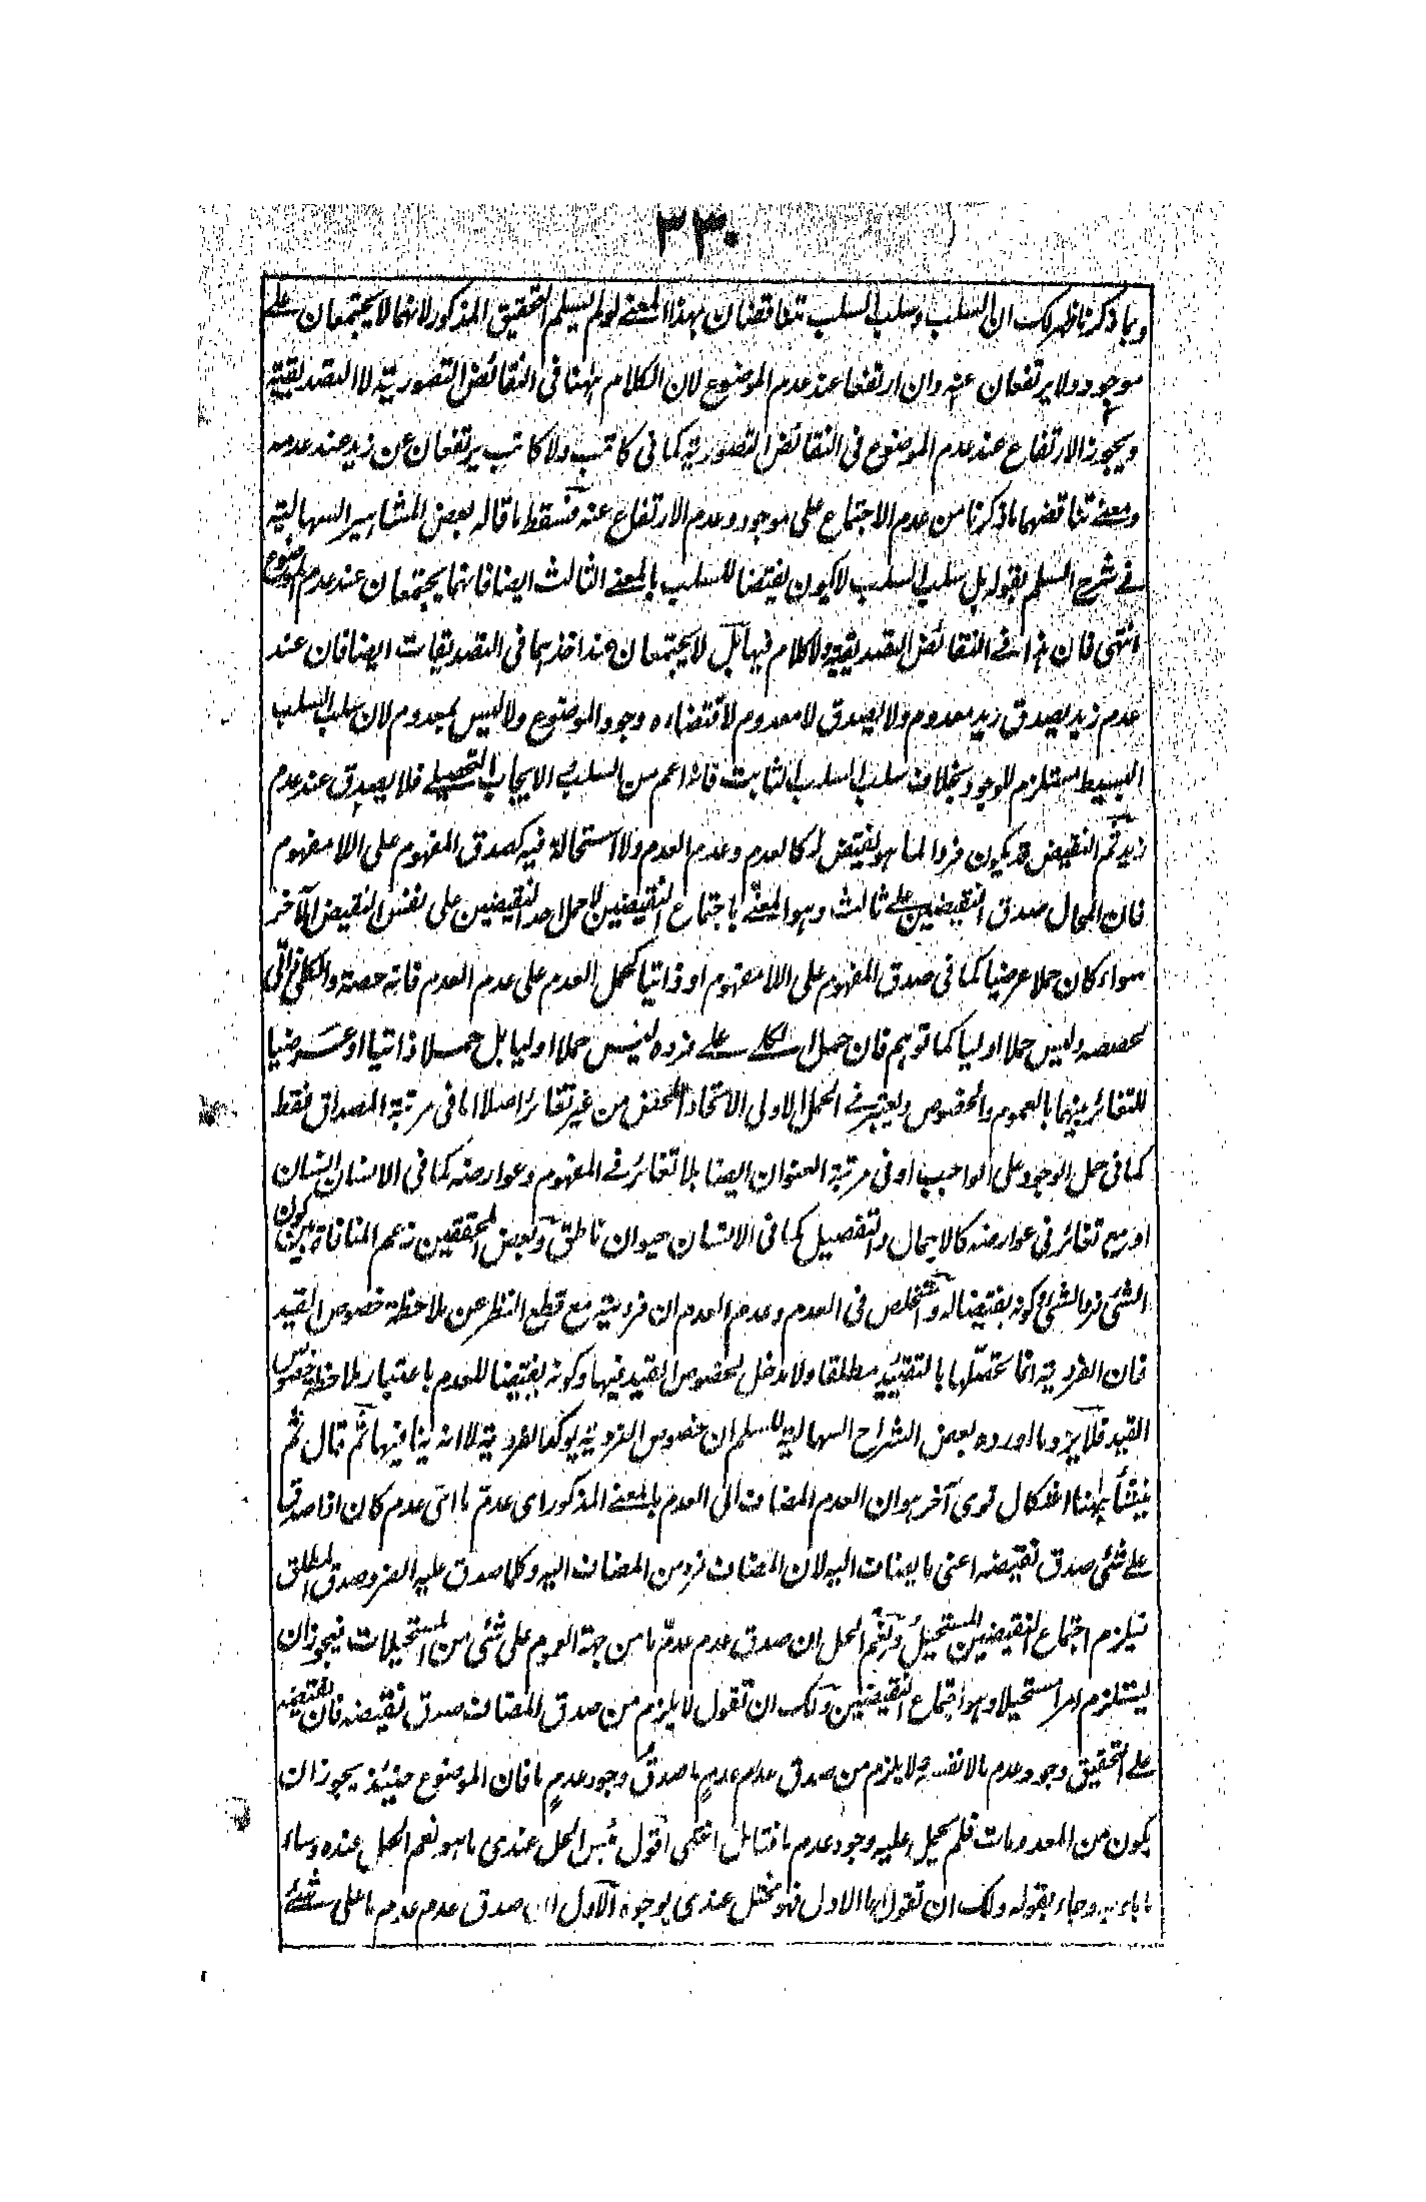 ٣٣٠
وبما ذكرنا ظهر لك ان السلب وسلب السلب متناقضان بهذا المعنى لو لم يسلم التحقيق المذكور لانهما لا يجتمعان على
موجود ولا يرتفعان عنه وان ارتفعا عند عدم الموضوع لان الكلام ههنا فى النقائض التصورية لا التصديقية
ويجوز الارتفاع عند عدم الموضوع فى النقائض التصورية كما فى كاتب ولا كاتب يرتفعان عن زيد عند عدمه
ومعنى تناقضهما ما ذكرنا من عدم الاجتماع على موجود وعدم الارتفاع عنه فسقط ما قاله بعض المشاهير السهالية
فى شرح السلم بقوله بل سلب السلب لا يكون نقيضا للسلب بالمعنى الثالث ايضا فانهما يجتمعان عند عدم الموضوع
انتهى فان هذا فى النقائض التصديقية ولا كلام فيها بل لا يجتمعان عند اخذهما فى التصديقات ايضا فان عند
عدم زيد يصدق زيد معدوم ولا يصدق لا معدوم لاقتضاءه وجود الموضوع ولا ليس بمعدوم لان سلب السلب
البسيط مستلزم للوجود بخلاف سلب السلب الثابت فانه اعم من السلب الايجاب التحصيلى فلا يصدق عند عدم
زيد ثم النقيض قد يكون فردا لما هو نقيض له كالعدم وعدم العدم ولا استحالة فيه كصدق المفهوم على اللامفهوم
فان المحال صدق النقيضين على ثالث وهو المعنى باجتماع النقيضين لا حمل احد النقيضين على نفس النقيض الآخر
سواء كان حملا عرضيا كما فى صدق المفهوم على اللامفهوم او ذاتيا كحمل العدم على عدم العدم فانه حصة والكلى ذاتى
لحصصه وليس حملا اوليا كما توهم فان حمل الكلى على فرده ليس حملا اوليا بل حملا ذاتيا او عرضيا
للتغائر بينهما بالعموم والخصوص ويعتبر فى الحمل الاولى الاتحاد المحض من غير تغائر اصلا اما فى مرتبة المصداق فقط
كما فى حمل الوجود على الواجب او فى مرتبة العنوان ايضا بلا تغائر فى المفهوم وعوارضه كما فى الانسان انسان
او مع تغائر فى عوارضه كالاجمال والتفصيل كما فى الانسان حيوان ناطق وبعض المحققين زعم المنافاة بين كون
الشئ فرد الشئ وكونه نقيضا له والتخلص فى العدم وعدم العدم ان فرديته مع قطع النظر عن ملاحظة خصوص القيد
فان الفردية انما تحصلها بالتقييد مطلقا ولا مدخل لخصوص القيد فيها وكونه نقيضا للعدم باعتبار ملاحظة خصوص
القيد فلا يرد ما اورده بعض الشراح السهالية للسلم ان خصوص الفردية يؤكد الفردية لا انه ينافيها ثم قال ثم
ههنا اشكال قوى آخر هو ان العدم المضاف الى العدم بالمعنى المذكور اى عدم ما اى عدم كان اذا صدق
على شئ صدق نقيضه اعنى ما يضاف اليه لان المضاف فرد من المضاف اليه وكلما صدق عليه الفرد صدق المطلق
فيلزم اجتماع النقيضين المستحيل ونعم الحل ان صدق عدم عدم ما من جهة العموم على شئ من المستحيلات فيجوز ان
يستلزم امرا مستحيلا وهو اجتماع النقيضين ولك ان تقول لا يلزم من صدق المضاف صدق نقيضه فان نقيضه
على التحقيق وجود عدم ما لا نفسه ولا يلزم من صدق عدم عدم ما صدق وجود عدم ما فان الموضوع حينئذ يجوز ان
يكون من المعدومات فلم يحمل عليه وجود عدم ما فتامل انتهى اقول بئس الحل عندى ما هو نعم الحل عنده وساء
ما جاء به وجاء بقوله ولك ان تقول اما الاول فهو مختل عندى بوجوه الاول ان صدق عدم عدم ما على شئ